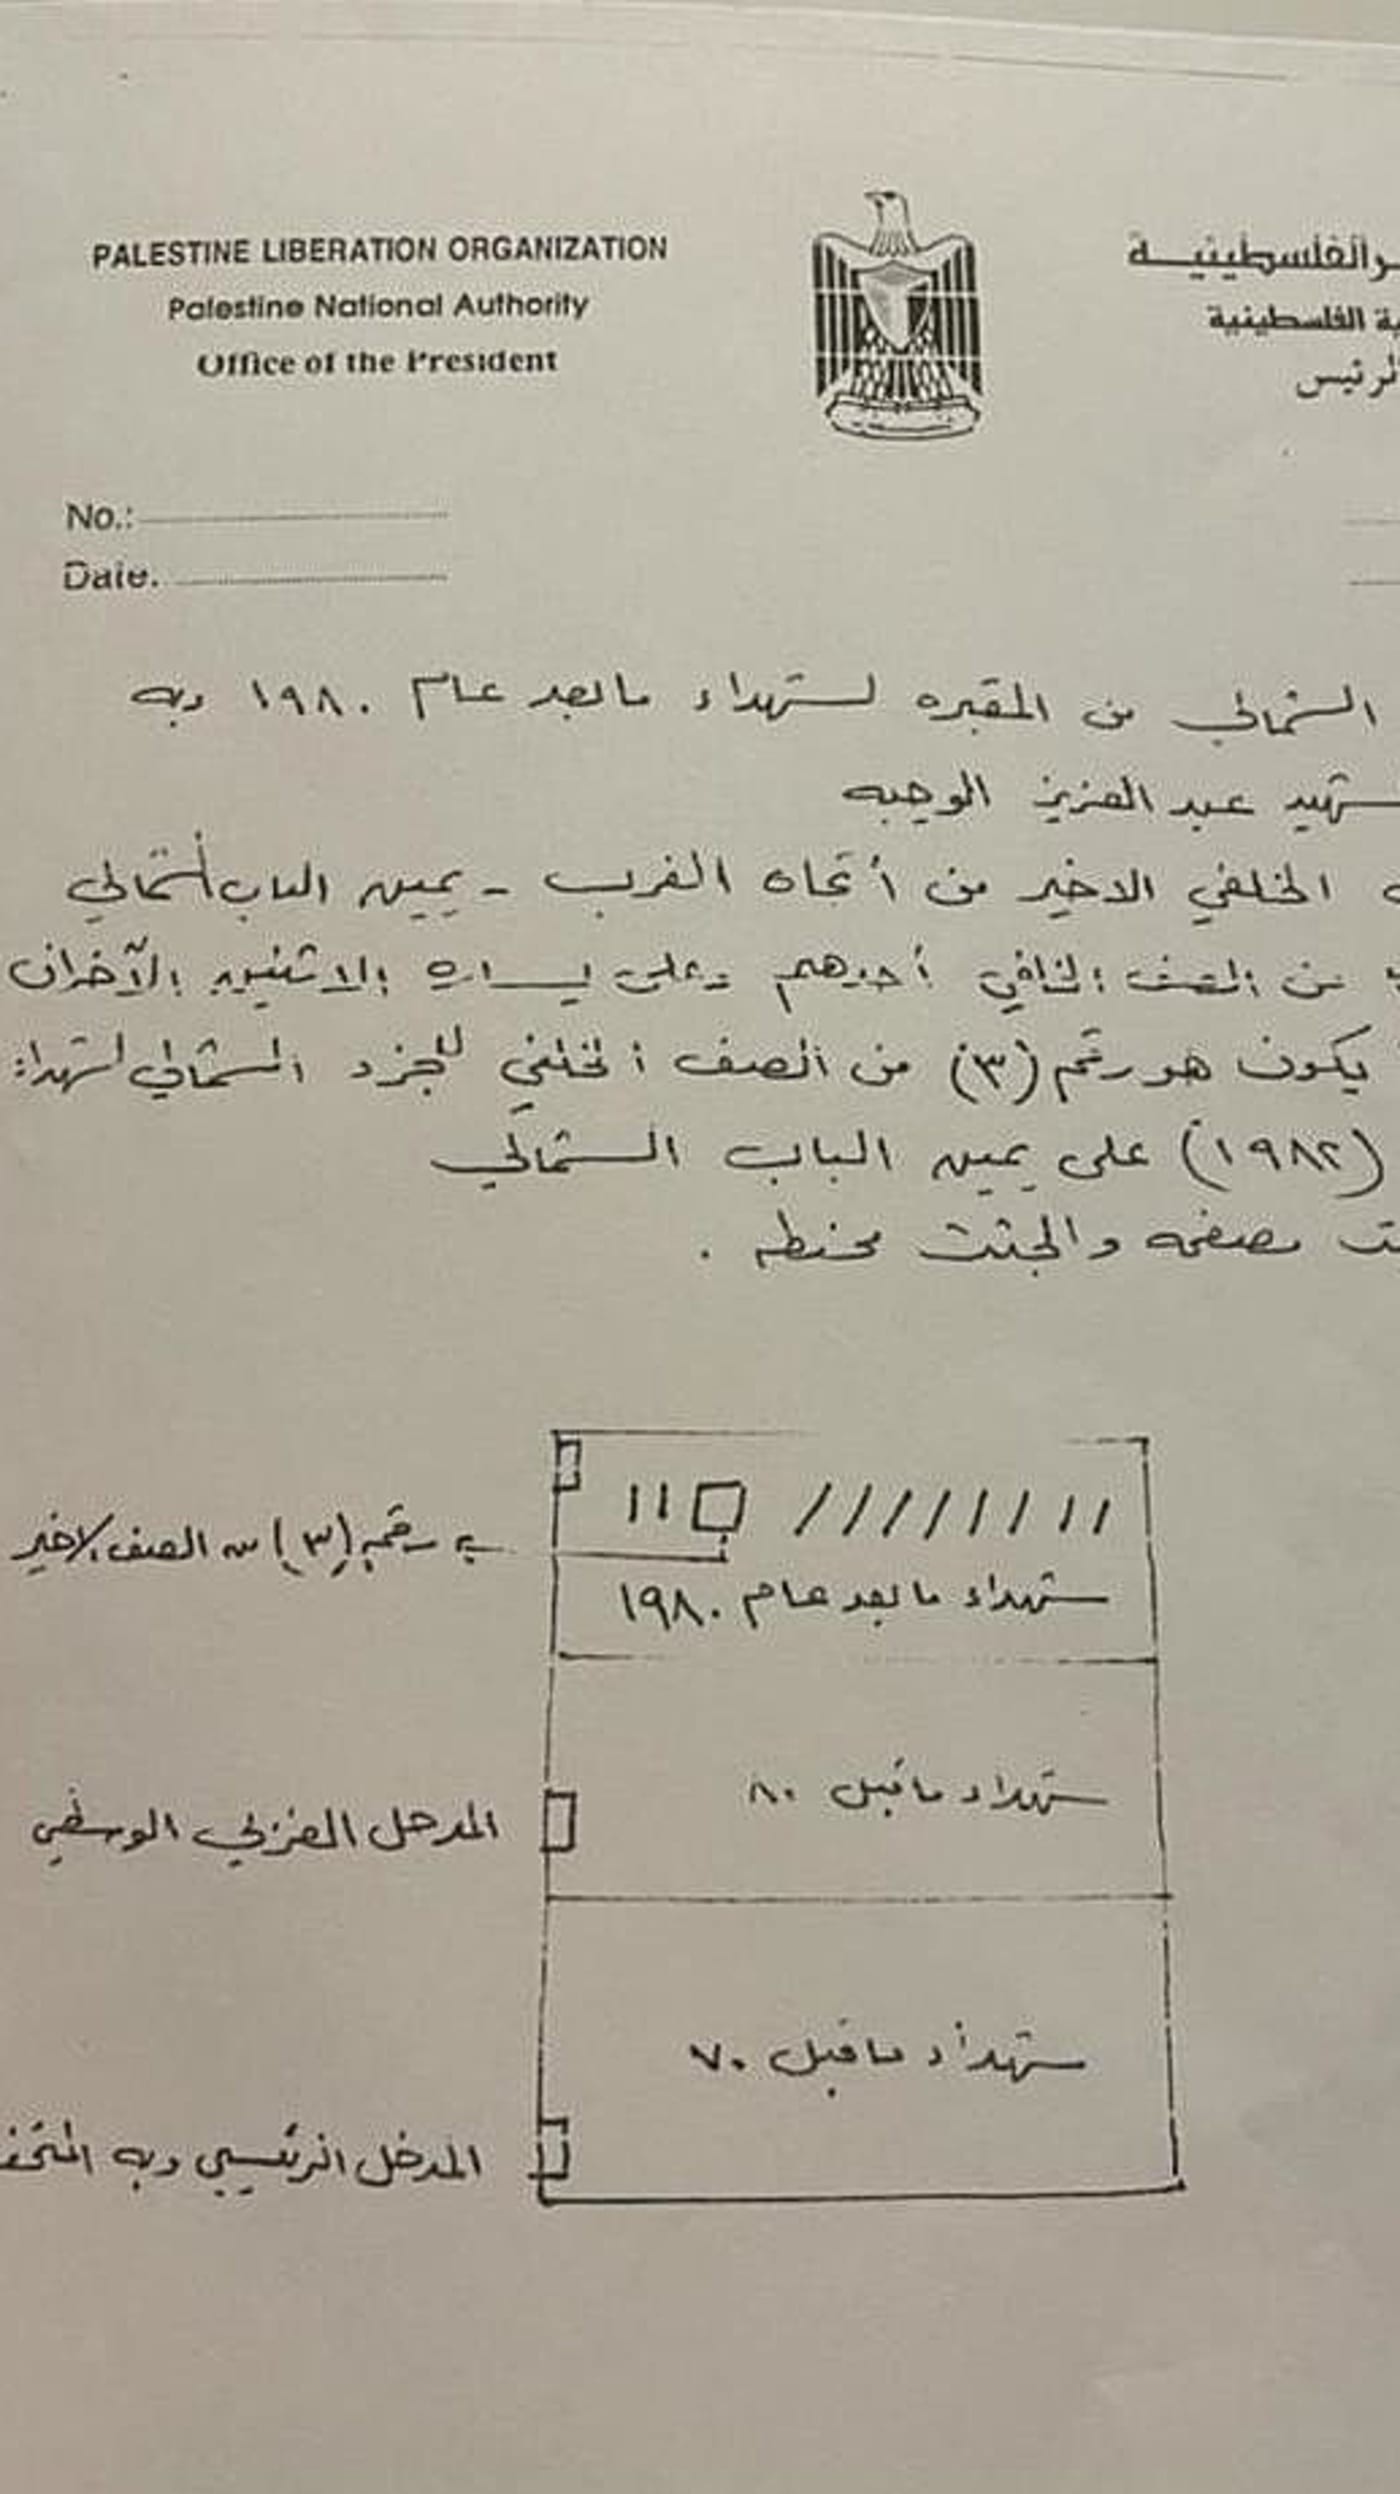 PALESTINE LIBERATION ORGANIZATION
Palestine National Authority
Office of the President
ـر الفلسطينيـــة
ية الفلسطينية
لرئيس
No.:
Date.
الشمالي من المقبره لشهداء مابعد عام ١٩٨٠ وبه
شهيد عبد العزيز الوجيه
الخلفي الاخير من أتجاه الغرب - يمين الباب الشمالي
من الصف الخلفي أحدهم وعلى يساره الاثنين الآخران
يكون هو رقم (٣) من الصف الخلفي للجزء الشمالي لشهداء
(١٩٨٢) على يمين الباب الشمالي
مصفحه والجثث محنطه .
رقم (٣) من الصف الاخير
شهداء ما بعد عام ١٩٨٠
شهداء ماقبل ٨٠
المدخل الغربي الوسطي
شهداء ماقبل ٧٠
المدخل الرئيسي وبه